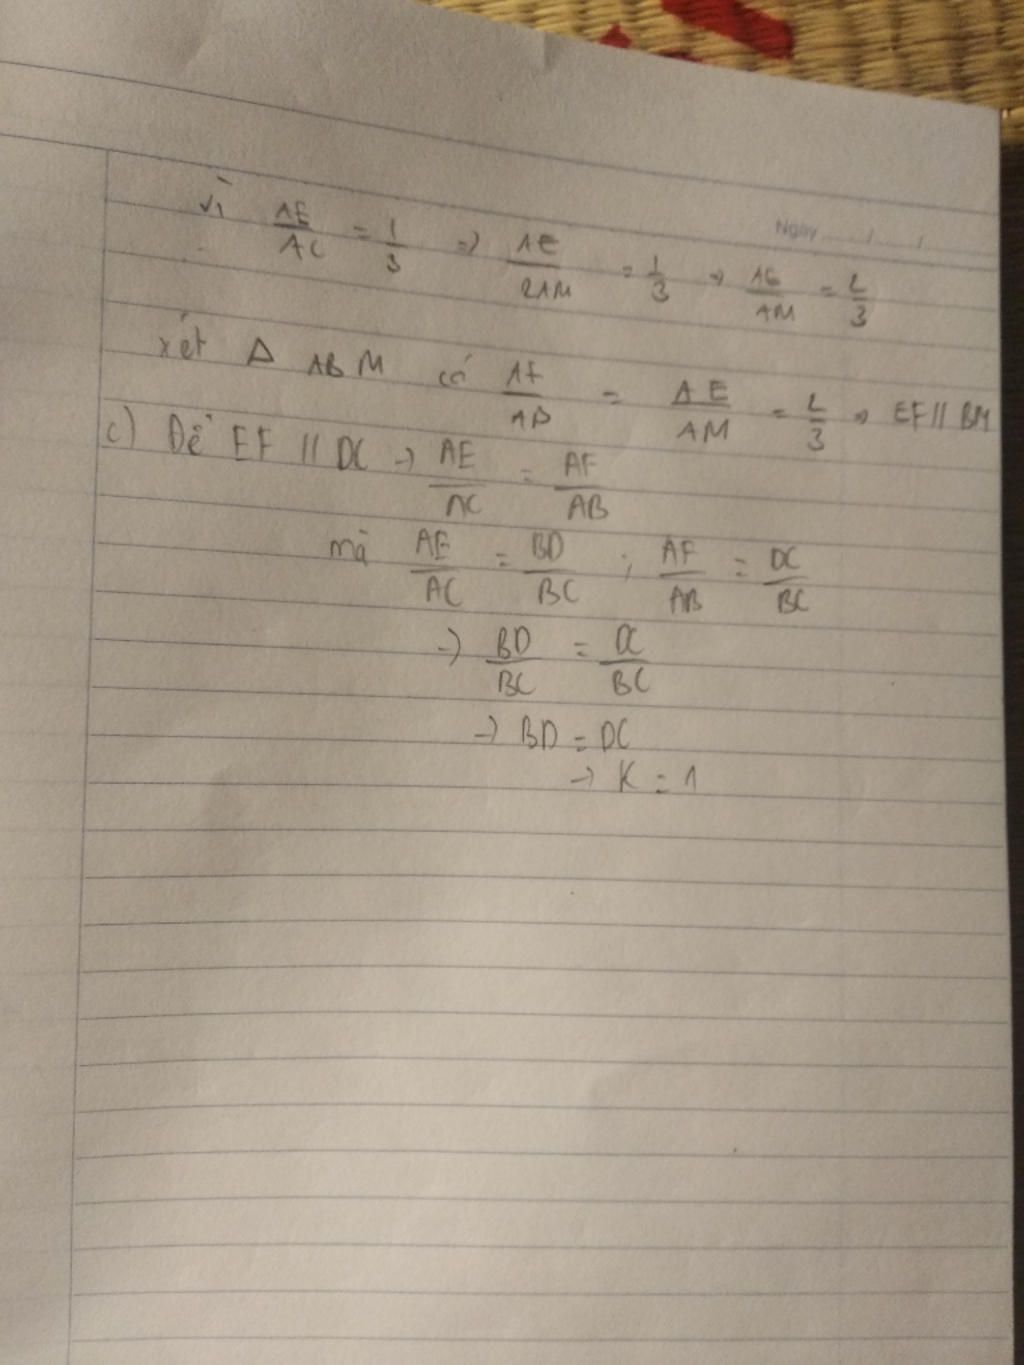 Ngày / /
Vì AE/AC = 1/3 => AE/2AM = 1/3 => AE/AM = 2/3
xét Δ ABM có AF/AB = AE/AM = 2/3 => EF // BM
c) Để EF // DC -> AE/AC = AF/AB
mà AE/AC = BD/BC ; AF/AB = DC/BC
-> BD/BC = DC/BC
-> BD = DC
-> K = 1